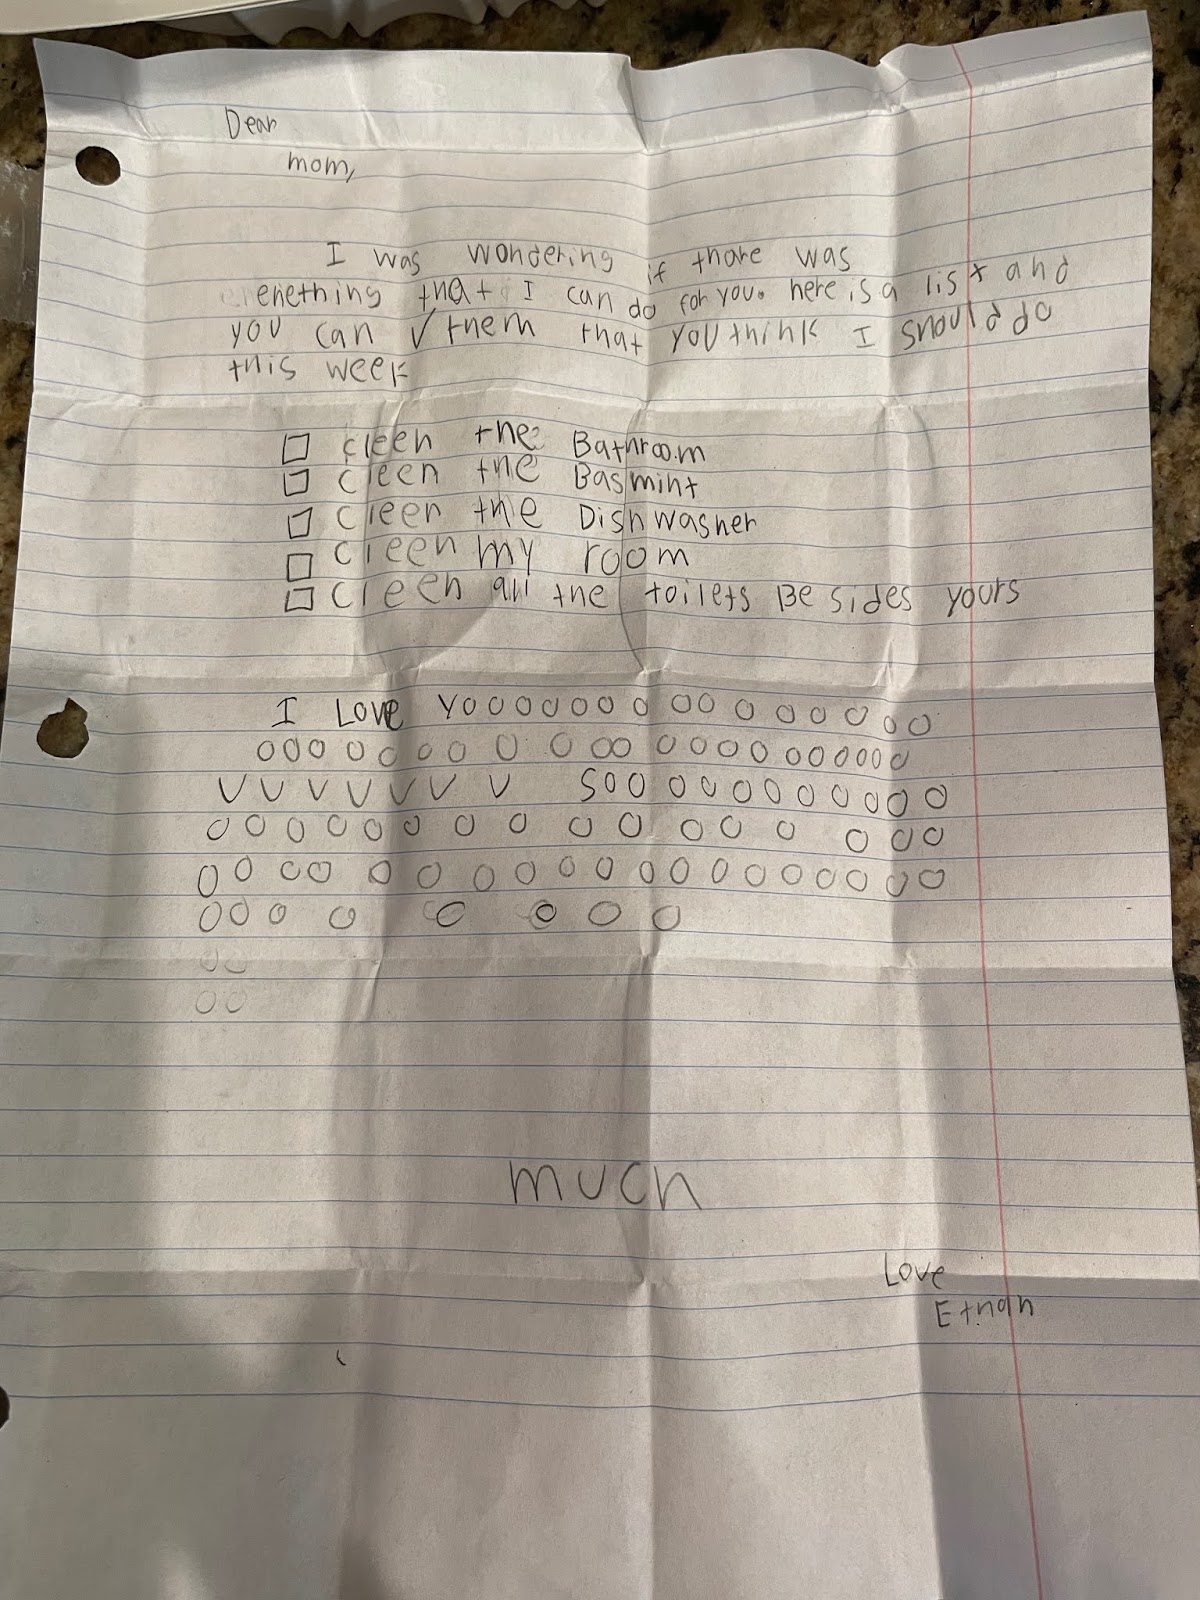 Dear
mom,
I was wondering if thare was
enething that I can do for you. here is a list and
you can ✓ them that you think I should do
this week
☐ cleen the Bathroom
☐ cleen the Basmint
☐ cleen the Dishwasher
☐ cleen my room
☐ cleen all the toilets Besides yours
I Love Yooooooooooooooo
ooooooooooooooooooooo
VVVVVVV Sooooooooooo
oooooooooooooooo
ooooooooooooooooooo
oooooooo
oo
oo
much
Love
Ethan